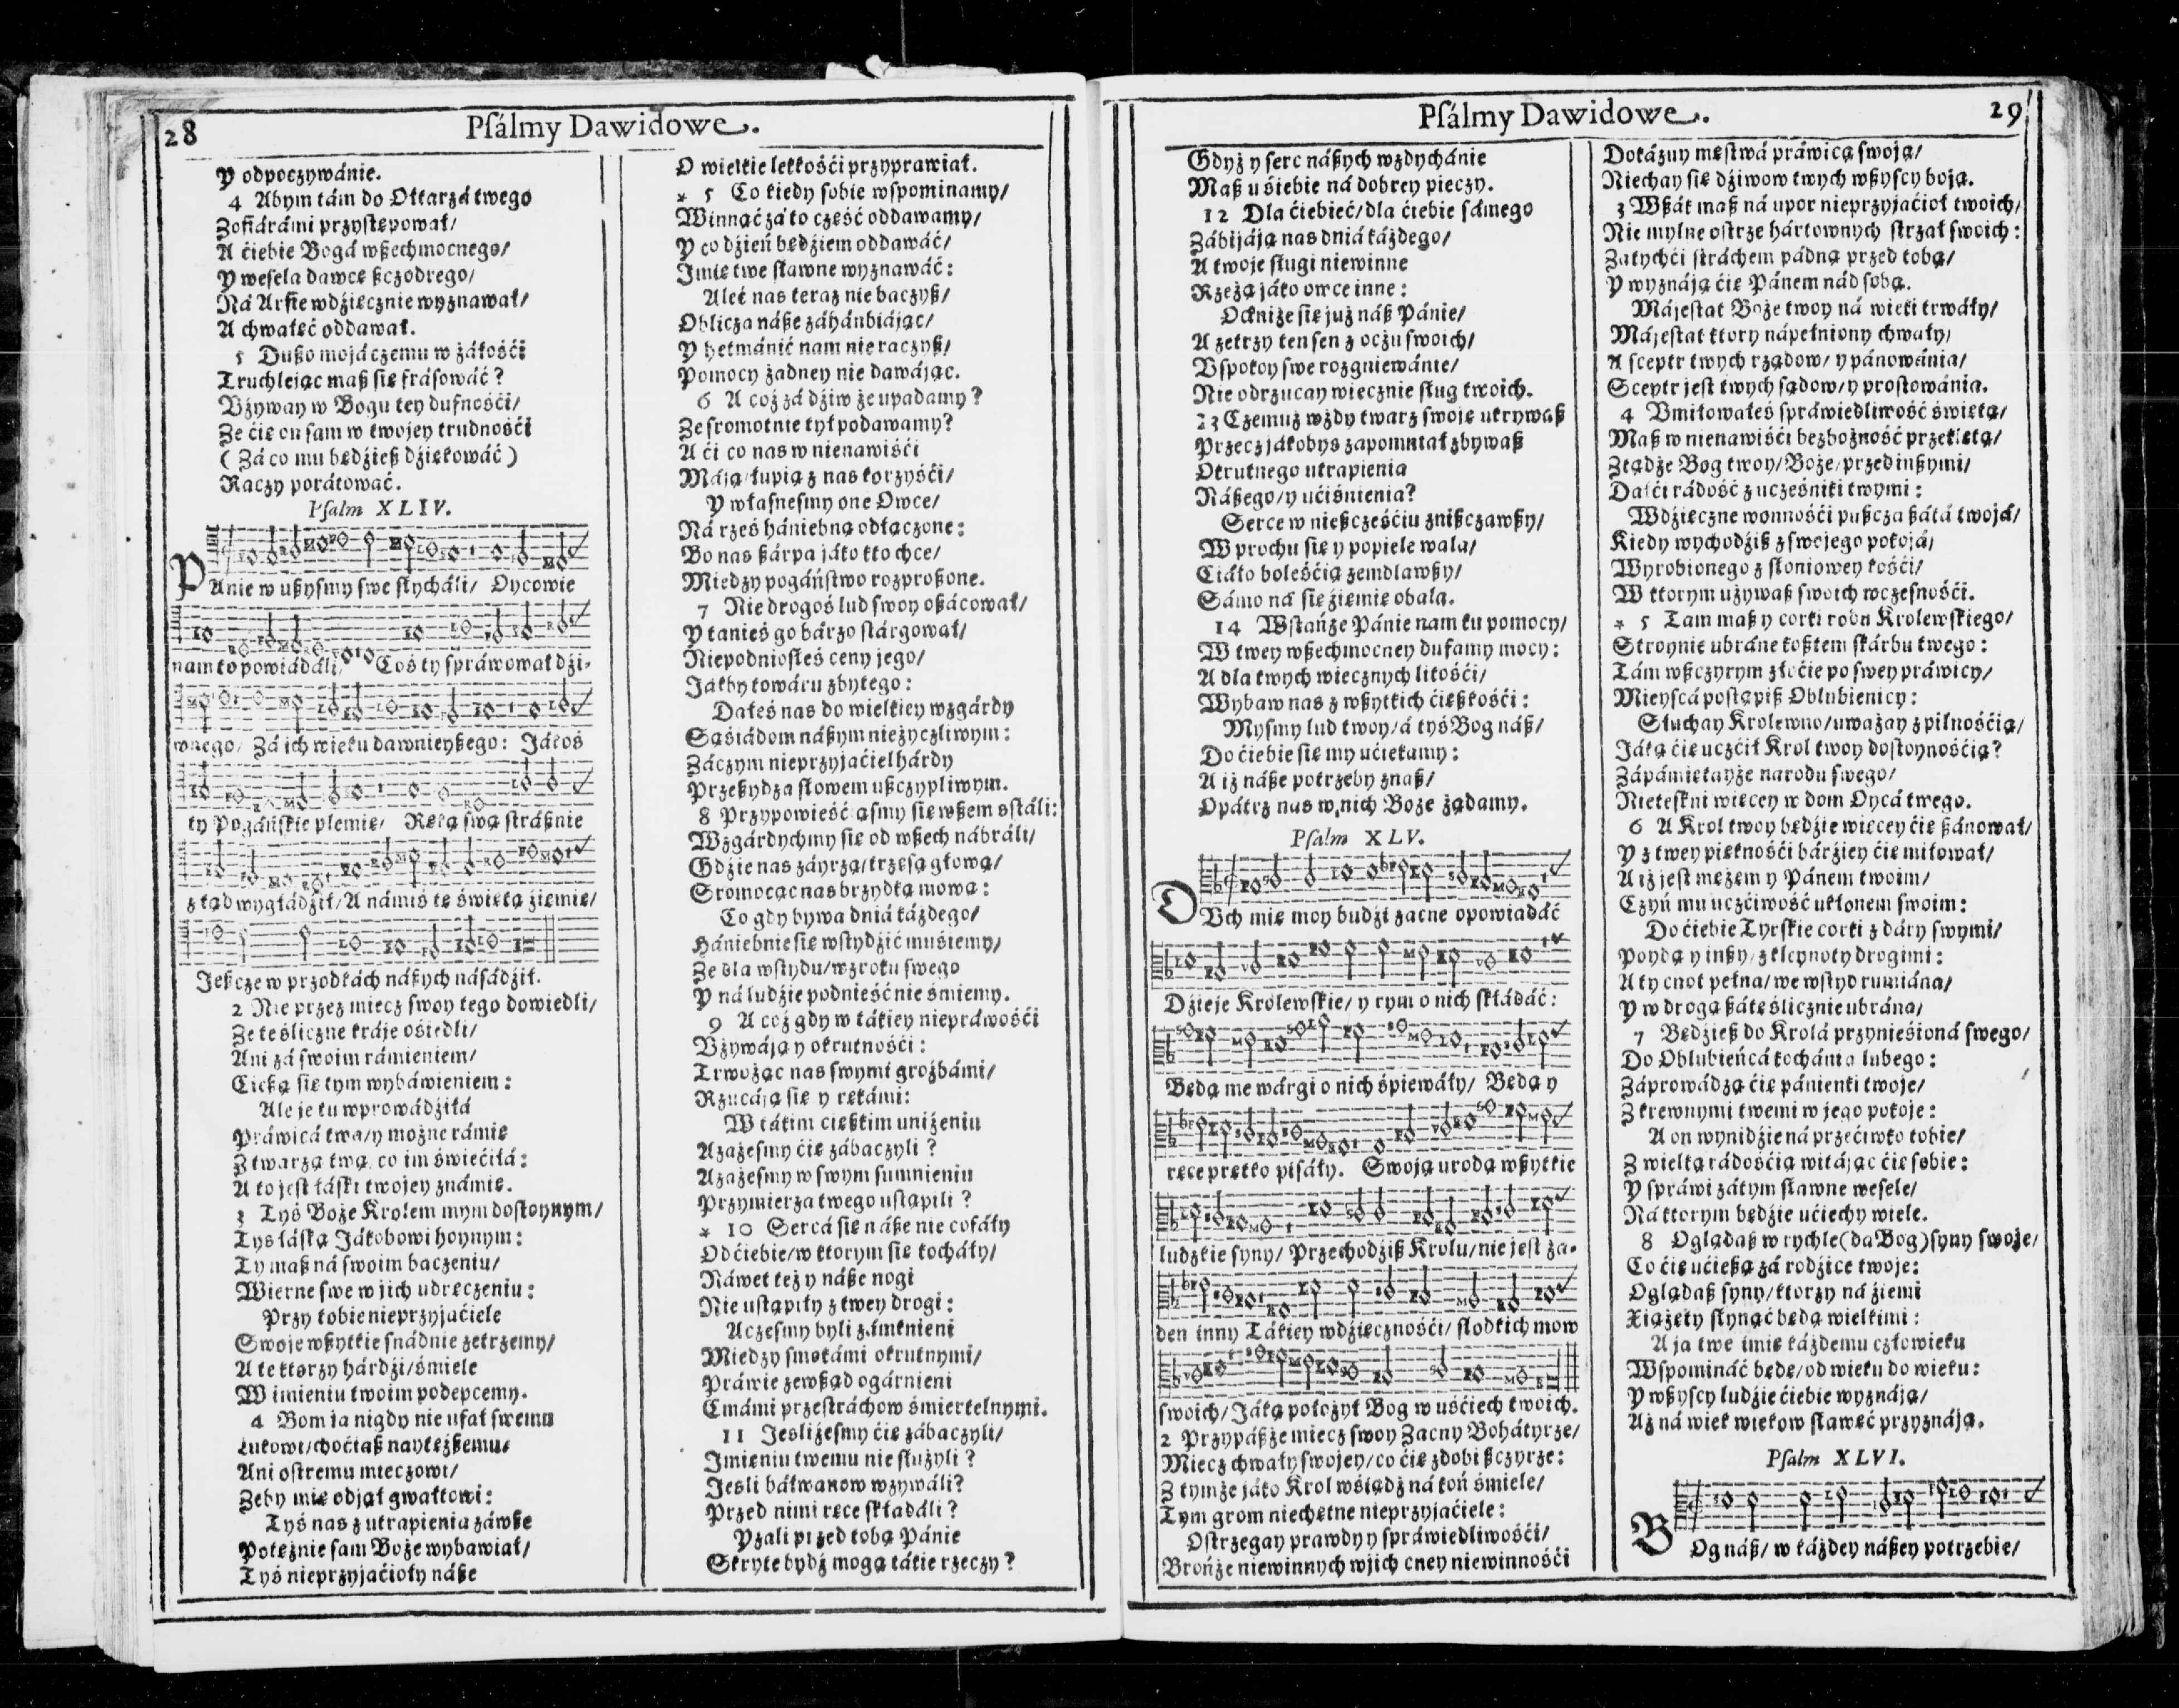 28
Psálmy Dawidowe.
Y odpoczywánie.
4 Abym tám do Ołtarzá twego
Zofiárámi przystępował/
A ćiebie Bogá wßechmocnego/
Y wesela dawcę ßczodrego/
Ná Arfie wdźięcznie wyznawał/
A chwałęć oddawał.
5 Dußo mojá czemu w żáłośći
Truchlejąc maß się frásowáć?
Vżyway w Bogu tey dufnośći/
Ze ćię on sam w twojey trudnośći
(Zá co mu będźieß dźiękowáć)
Raczy porátowáć.
Psalm XLIV.
PAnie w ußysmy swe słycháli/ Oycowie
nam to powiádáli/ Coś ty spráwował dźi-
wnego/ Zá ich wieku dawnieyßego: Jákoś
ty Pogáńskie plemię/ Ręką swą stráßnie
z tąd wygłádźił/ A námiś tę świętą źiemię/
Jeßcze w przodkách náßych násádźił.
2 Nie przez miecz swoy tego dowiedli/
Ze te śliczne kráje ośiedli/
Ani zá swoim rámieniem/
Cießą się tym wybáwieniem:
Ale je tu wprowádźiłá
Práwicá twa/ y możne rámię
Z twarzą twą, co im świećiłá:
A to jest łáski twojey známię.
3 Tyś Boże Krolem mym dostoynym/
Tyś łáską Jákobowi hoynym:
Ty maß ná swoim baczeniu/
Wierne swe w jich udręczeniu:
Przy tobie nieprzyjaćiele
Swoje wßytkie snádnie zetrzemy/
A te ktorzy hárdźi/ śmiele
W imieniu twoim podepcemy.
4 Bom ja nigdy nie ufał swemu
Łukowi/ choćiaß naytężßemu/
Ani ostremu mieczowi/
Zeby mię odjął gwałtowi:
Tyś nas z utrapienia záwße
Potężnie sam Boże wybawiał/
Tyś nieprzyjaćioły náße
O wielkie lekkośći przyprawiał.
* 5 Co kiedy sobie wspominamy/
Winnąć zá to cześć oddawamy/
Y co dźień będźiem oddawáć/
Imię twe sławne wyznawáć:
Aleć nas teraz nie baczyß/
Oblicza náße záhánbiájąc/
Y hetmánić nam nie raczyß/
Pomocy żadney nie dawájąc.
6 A coż zá dźiw że upadamy?
Ze sromotnie tył podawamy?
A ći co nas w nienawiśći
Máją/ łupią z nas korzyśći/
Y własnesmy one Owce/
Ná rzeź hániebną odłączone:
Bo nas ßárpa jáko kto chce/
Miedzy pogáństwo rozproßone.
7 Nie drogoś lud swoy oßácował/
Y tanieś go bárzo stárgował/
Niepodniosłeś ceny jego/
Jákby towáru zbytego:
Dałeś nas do wielkiey wzgárdy
Sąśiádom náßym nieżyczliwym:
Záczym nieprzyjaćiel hárdy
Przeßydza słowem ußczypliwym.
8 Przypowieśćiąsmy się wßem sstáli:
Wzgárdychmy się od wßech nábráli/
Gdźie nas záyrzą/ trzęsą głową/
Sromocąc nas brzydką mową:
Co gdy bywa dniá káżdego/
Hániebnie się wstydźić muśiemy/
Ze dla wstydu/ wzroku swego
Y ná ludźie podnieść nie śmiemy.
9 A coż gdy w tákiey niepráwośći
Vżywáją y okrutnośći:
Trwożąc nas swymi groźbámi/
Rzucáją się y rękámi:
W tákim cięßkim uniżeniu
Azażesmy ćię zábaczyli?
Azażesmy w swym sumnieniu
Przymierza twego ustąpili?
* 10 Sercá się náße nie cofáły
Od ćiebie/ w ktorym się kocháły/
Náwet też y náße nogi
Nie ustąpiły z twey drogi:
Aczesmy byli zámknieni
Miedzy smokámi okrutnymi/
Práwie zewßąd ogárnieni
Cmámi przestráchow śmiertelnymi.
11 Jesliżesmy ćię zábaczyli/
Imieniu twemu nie służyli?
Jesli báłwanow wzywáli?
Przed nimi ręce składáli?
Yzali przed tobą Pánie
Skryte bydź mogą tákie rzeczy?
Psálmy Dawidowe.
29
Gdyż y serc náßych wzdychánie
Maß u śiebie ná dobrey pieczy.
12 Dla ćiebieć/ dla ćiebie sámego
Zábijáją nas dniá káżdego/
A twoje sługi niewinne
Rzeżą jáko owce inne:
Ockniże się już náß Pánie/
A zetrzy ten sen z oczu swoich/
Vspokoy swe rozgniewánie/
Nie odrzucay wiecznie sług twoich.
23 Czemuż wżdy twarz swoję ukrywaß
Przecz jákobys zapomniał zbywaß
Okrutnego utrapienia
Náßego/ y ućiśnienia?
Serce w nießczęśćiu znißczawßy/
W prochu się y popiele wala/
Ciáło boleśćią zemdlawßy/
Sámo ná się źiemię obala.
14 Wstańże Pánie nam ku pomocy/
W twey wßechmocney dufamy mocy:
A dla twych wiecznych litośći/
Wybaw nas z wßytkich ćięßkośći:
Mysmy lud twoy/ á tyś Bog náß/
Do ćiebie się my ućiekamy:
A iż náße potrzeby znaß/
Opátrz nas w nich Boże żądamy.
Psalm XLV.
DVch mię moy budźi zacne opowiadáć
Dźieje Krolewskie/ y rym o nich składáć:
Będą me wárgi o nich śpiewáły/ Będą y
ręce prętko pisáły. Swoją urodą wßytkie
ludzkie syny/ Przechodźiß Krolu/ nie jest ża-
den inny Tákiey wdźięcznośći/ słodkich mow
swoich/ Jáką położył Bog w uśćiech twoich.
2 Przypáßże miecz swoy Zacny Bohátyrze/
Miecz chwały swojey/ co ćię zdobi ßczyrze:
Z tymże jáko Krol wśiądź ná koń śmiele/
Tym grom niechętne nieprzyjaćiele:
Ostrzegay prawdy y spráwiedliwośći/
Brońże niewinnych w jich cney niewinnośći
Dokázuy męstwá práwicą swoją/
Niechay się dźiwow twych wßyscy boją.
3 Wßák maß ná upor nieprzyjaćioł twoich/
Nie mylne ostrze hártownych strzał swoich:
Zátychći stráchem pádną przed tobą/
Y wyznáją ćię Pánem nád sobą.
Májestat Boże twoy ná wieki trwáły/
Májestat ktory nápełniony chwały/
A sceptr twych rządow/ y pánowánia/
Sceptr jest twych sądow/ y prostowánia.
4 Vmiłowałeś spráwiedliwość świętą/
Maß w nienawiśći bezbożność przeklętą/
Ztądże Bog twoy/ Boże/ przed inßymi/
Dał ći rádość z uczęśniki twymi:
Wdźięczne wonnośći pußcza ßátá twojá/
Kiedy wychodźiß z swojego pokojá/
Wyrobionego z słoniowey kośći/
W ktorym używaß swoich wczesnośći.
* 5 Tam maß y corki rodu Krolewskiego/
Stroynie ubráne koßtem skárbu twego:
Tám wßczyrym złoćie po swey práwicy/
Mieyscá postąpiß Oblubienicy:
Słuchay Krolewno/ uważay z pilnośćią/
Jáką ćię uczćił Krol twoy dostoynośćią?
Zápámiętayże narodu swego/
Nietęskni więcey w dom Oycá twego.
6 A Krol twoy będźie więcey ćię ßánował/
Y z twey pięknośći bárźiey ćię miłował/
A iż jest mężem y Pánem twoim/
Czyń mu uczćiwość ukłonem swoim:
Do ćiebie Tyrskie corki z dáry swymi/
Poydą y inßy/ z kleynoty drogimi:
A ty cnot pełna/ we wstyd rumiána/
Y w drogą ßátę ślicznie ubrána/
7 Będźieß do Krolá przynieśioná swego/
Do Oblubieńcá kochánia lubego:
Záprowádzą ćię pánienki twoje/
Z krewnymi twemi w jego pokoje:
A on wynidźie ná przećiwko tobie/
Z wielką rádośćią witájąc ćię sobie:
Y spráwi zátym sławne wesele/
Ná ktorym będźie ućiechy wiele.
8 Oglądaß w rychle (da Bog) syny swoje/
Co ćię ućießą zá rodźice twoje:
Oglądaß syny/ ktorzy ná źiemi
Xiążęty słynąć będą wielkimi:
A ja twe imię káżdemu człowieku
Wspomináć będę/ od wieku do wieku:
Y wßyscy ludźie ćiebie wyznáją/
Aż ná wiek wiekow sławęć przyznáją.
Psalm XLVI.
BOg náß/ w káżdey náßey potrzebie/